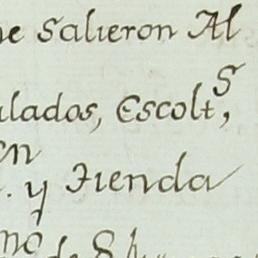 e Salieron Al
ulados, Escolt^s,
en
. y Tienda
mo de